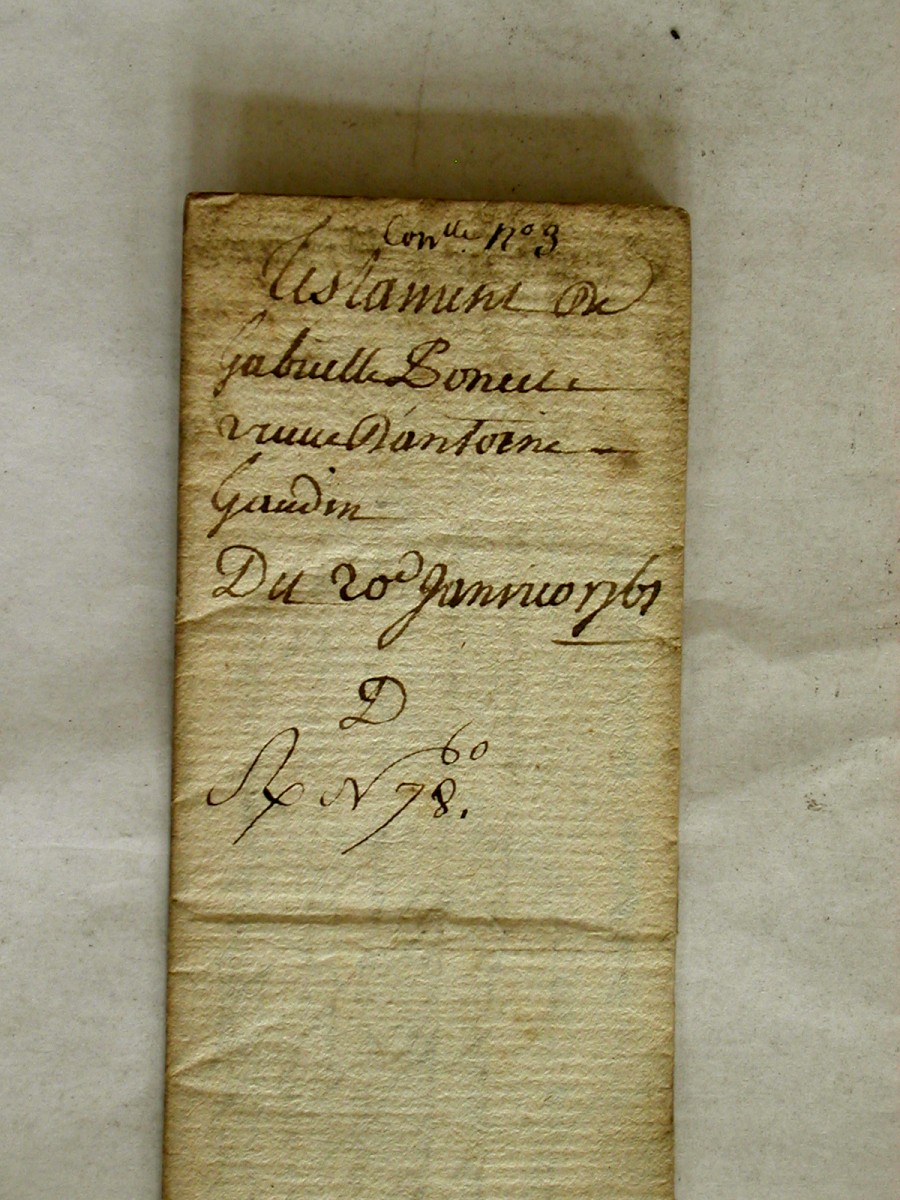 Con.lle n.o 3
Testament de
Gabrielle Bonelle
veuve d'antoine
Gaudin
Du 20e Janvier 1761
D
N 78.60